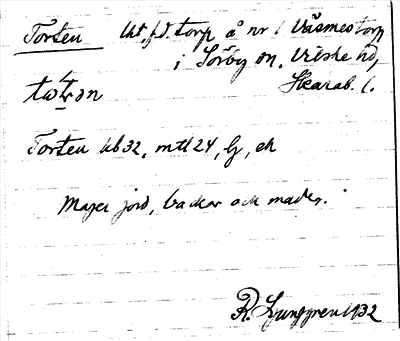 Torten Ut. f.d. torp å nr 1 Väsmestorp
i Sörby sn. Vilske hd,
Skarab. l.
Torten kb 32, mtl 24, lj, ek
Mager jord, backar och mader.
R. Ljunggren 1932